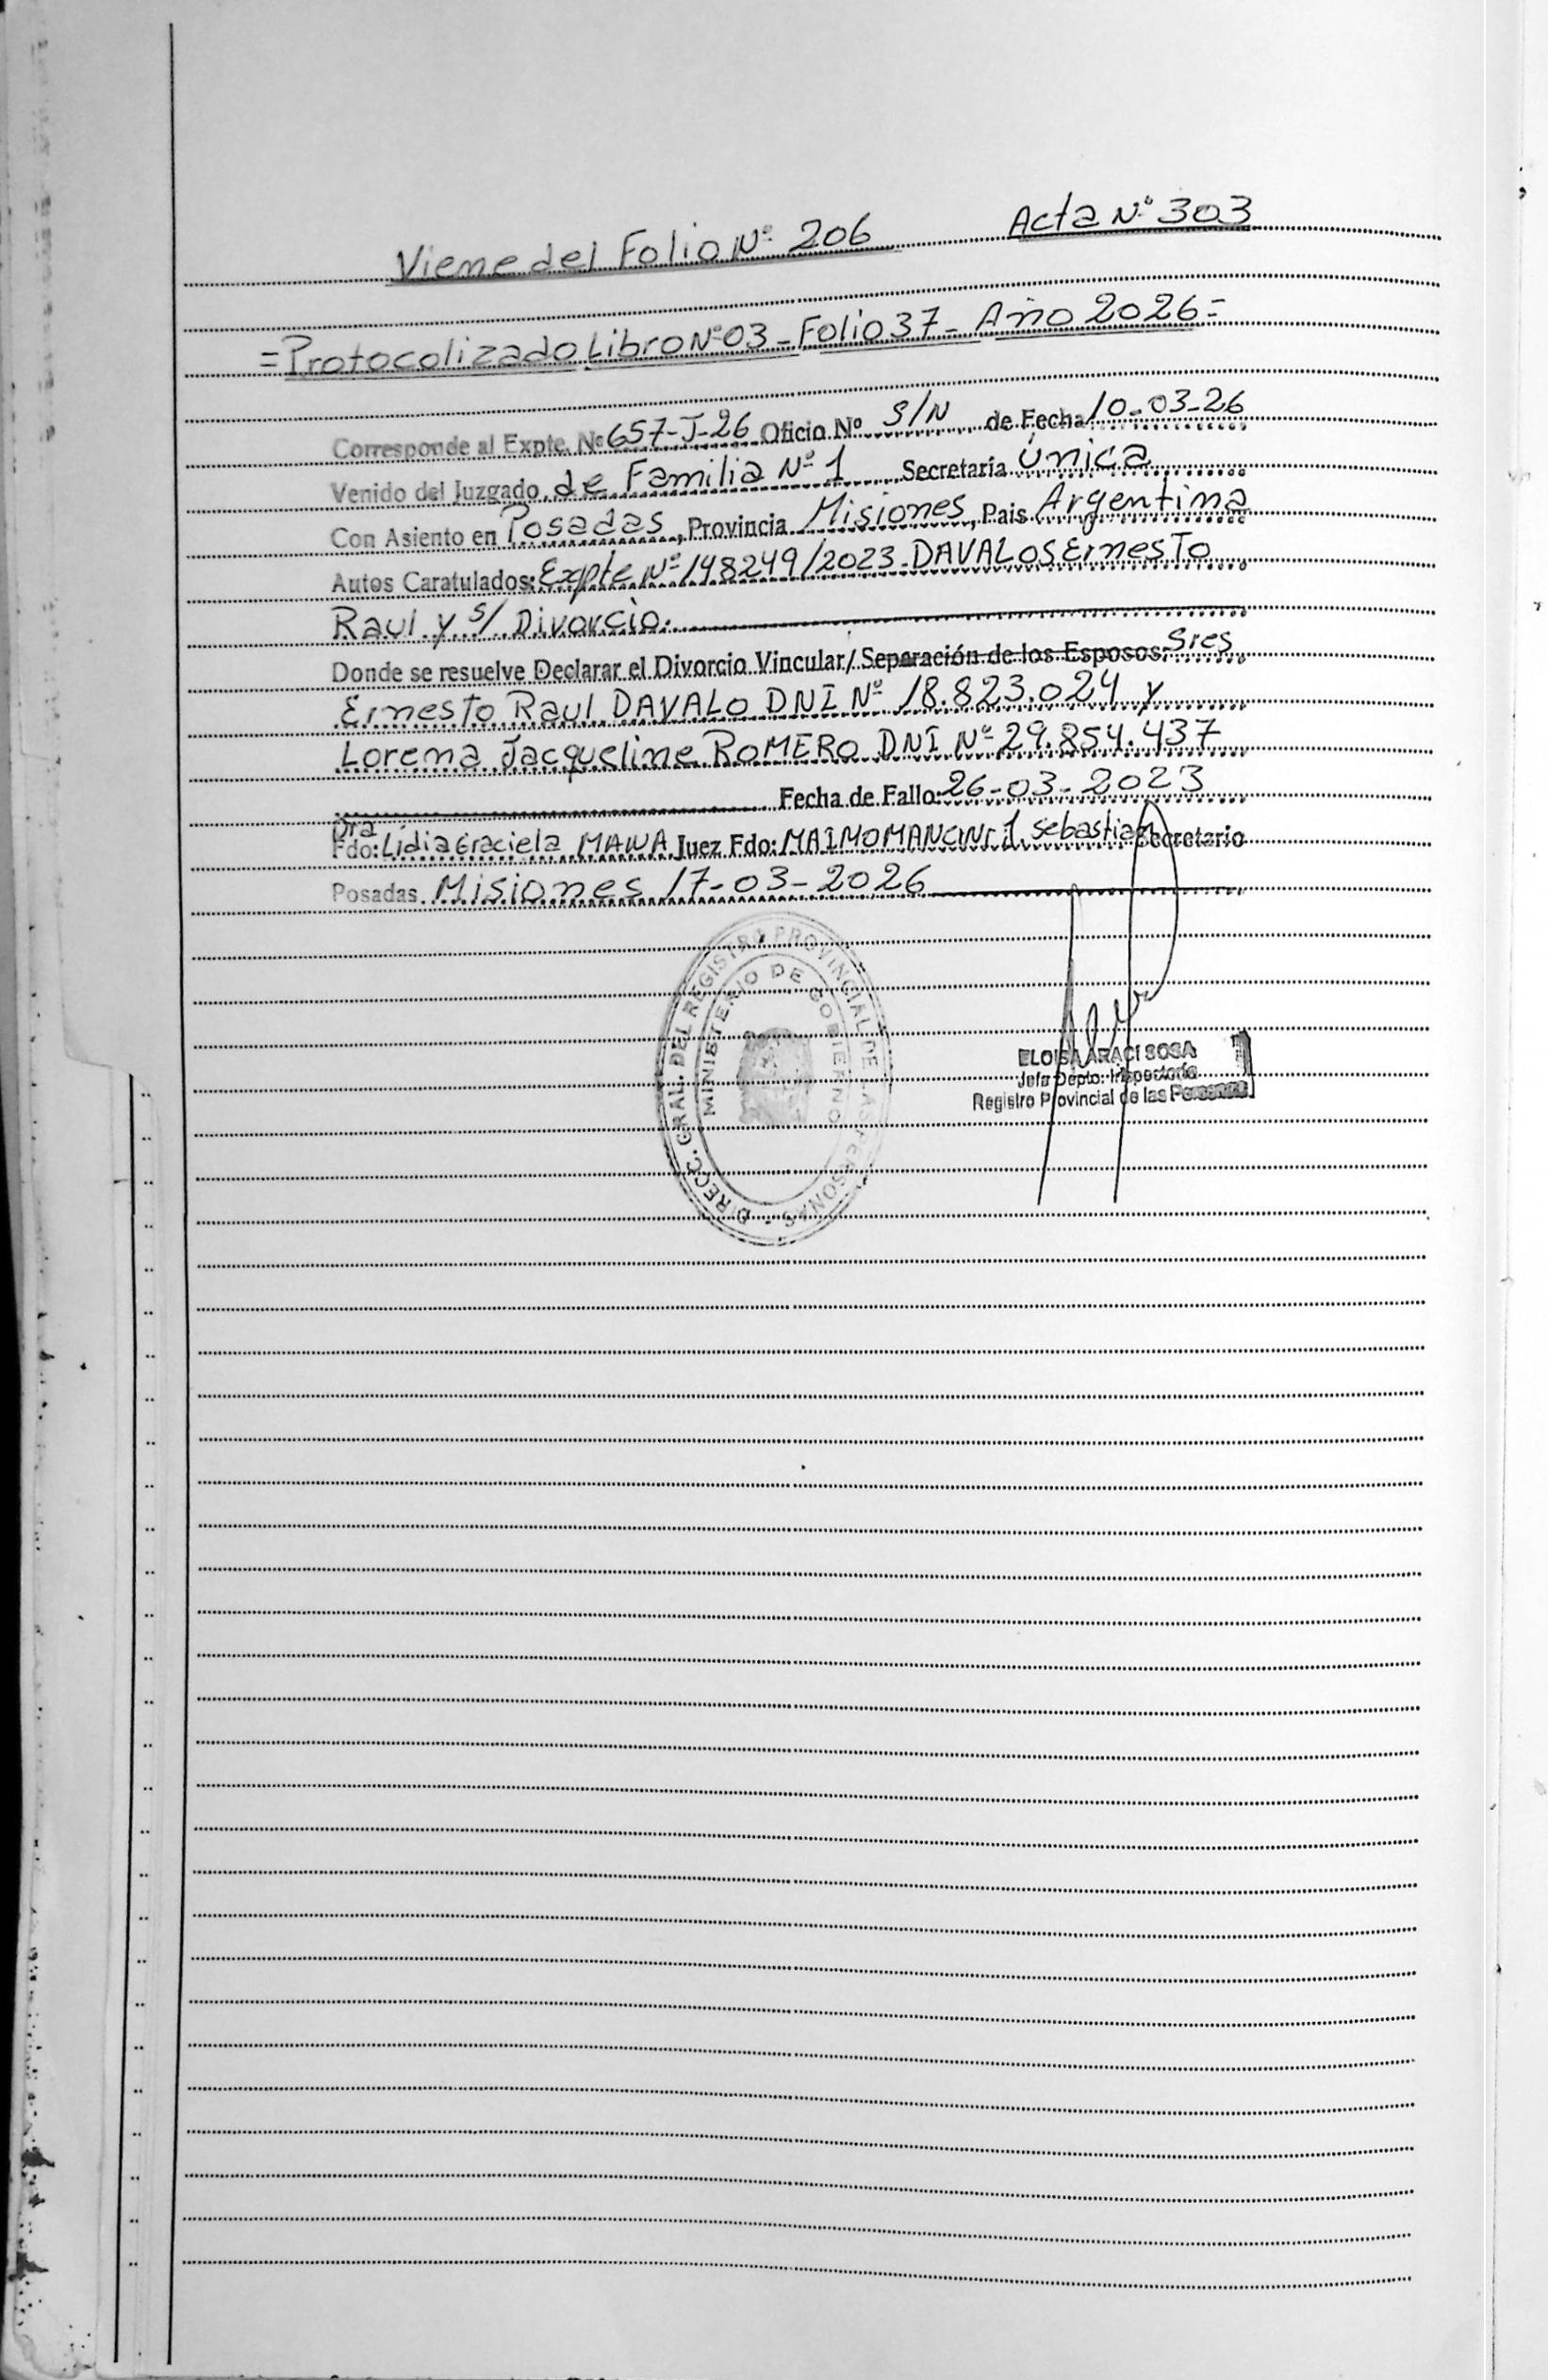 Viene del Folio Nº 206 Acta Nº 303
=Protocolizado Libro Nº 03 - Folio 37 - Año 2026=
Corresponde al Expte. Nº 657-J-26 Oficio Nº S/N de Fecha 10-03-26
Venido del Juzgado de Familia Nº 1 Secretaría Única
Con Asiento en Posadas, Provincia Misiones, Pais Argentina
Autos Caratulados: Expte Nº 148249/2023 - DAVALOS Ernesto
Raul y s/ Divorcio.
Donde se resuelve Declarar el Divorcio Vincular / Separación de los Esposos: Sres
Ernesto Raul DAVALO DNI Nº 18.823.024 y
Lorena Jacqueline ROMERO DNI Nº 29.854.437
Fecha de Fallo: 26-03-2023
Dra
Fdo: Lidia Graciela Juez Fdo: Sebastian Secretario
Posadas Misiones 17-03-2026
DIRECC. GRAL. DEL REGISTRO PROVINCIAL DE LAS PERSONAS
MINISTERIO DE GOBIERNO
ELOISA ARACI SOSA
Jefa Depto. Inspectoría
Registro Provincial de las Personas